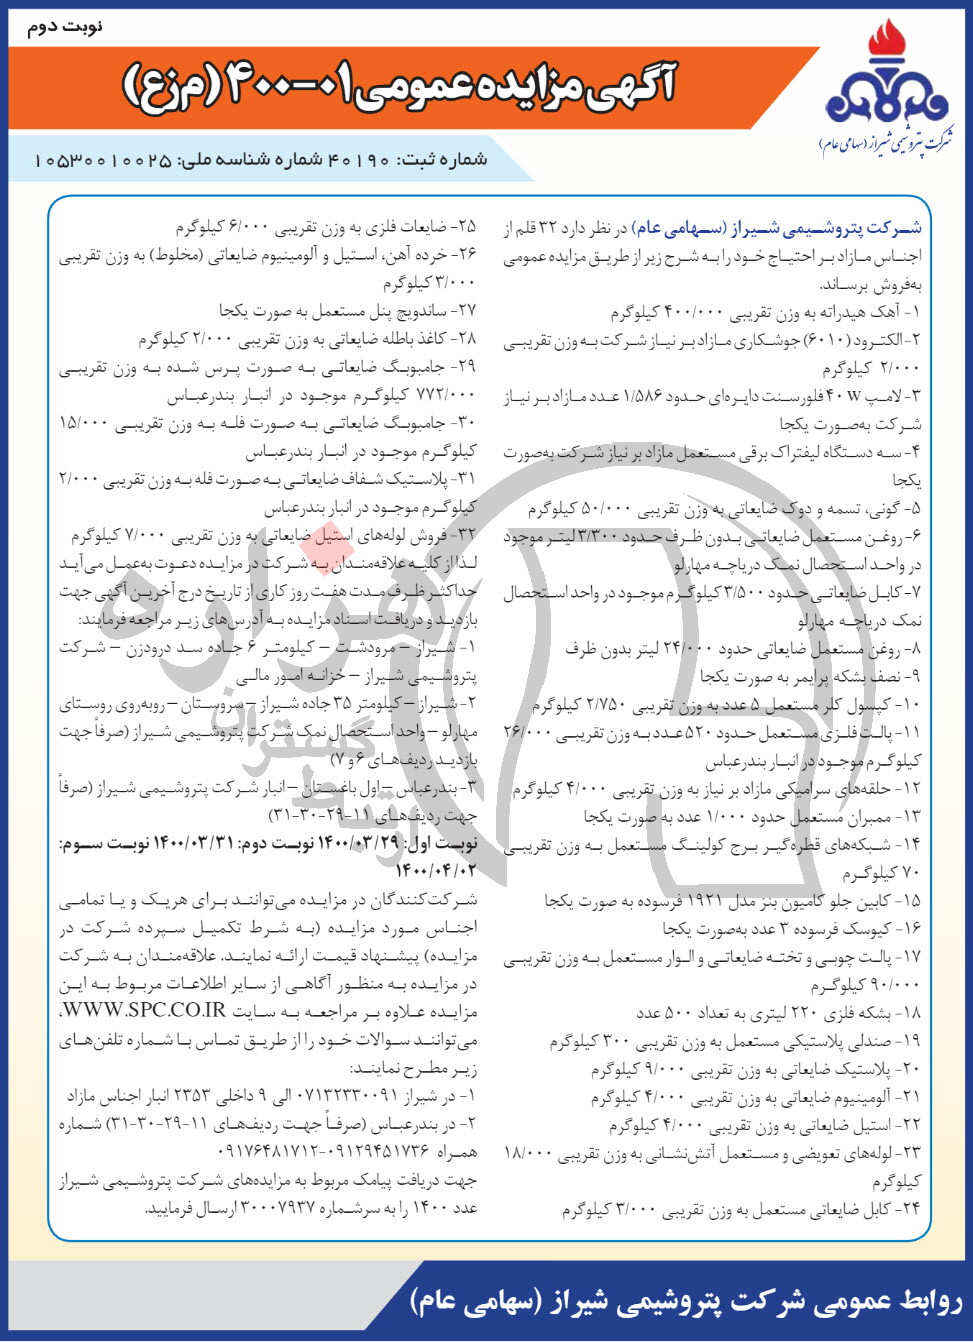 نوبت دوم
آگهی مزایده عمومی ۰۱-۴۰۰ (م‌زع)
شرکت پتروشیمی شیراز (سهامی عام)
شماره ثبت: ۴۰۱۹۰ شماره شناسه ملی: ۱۰۵۳۰۰۱۰۰۲۵
شرکت پتروشیمی شیراز (سهامی عام) در نظر دارد ۳۲ قلم از
اجناس مازاد بر احتیاج خود را به شرح زیر از طریق مزایده عمومی
به‌فروش برساند.
۱- آهک هیدراته به وزن تقریبی ۴۰۰/۰۰۰ کیلوگرم
۲-الکترود (۶۰۱۰) جوشکاری مازاد بر نیاز شرکت به وزن تقریبی
۲/۰۰۰ کیلوگرم
۳- لامپ ۴۰ W فلورسنت دایره‌ای حدود ۱/۵۸۶ عدد مازاد بر نیاز
شرکت به‌صورت یکجا
۴- سه دستگاه لیفتراک برقی مستعمل مازاد بر نیاز شرکت به‌صورت
یکجا
۵- گونی، تسمه و دوک ضایعاتی به وزن تقریبی ۵۰/۰۰۰ کیلوگرم
۶- روغن مستعمل ضایعاتی بدون ظرف حدود ۳/۳۰۰ لیتر موجود
در واحد استحصال نمک دریاچه مهارلو
۷-کابل ضایعاتی حدود ۳/۵۰۰ کیلوگرم موجود در واحد استحصال
نمک دریاچه مهارلو
۸- روغن مستعمل ضایعاتی حدود ۲۴/۰۰۰ لیتر بدون ظرف
۹- نصف بشکه پرایمر به صورت یکجا
۱۰- کپسول کلر مستعمل ۵ عدد به وزن تقریبی ۲/۷۵۰ کیلوگرم
۱۱- پالت فلزی مستعمل حدود ۵۲۰ عدد به وزن تقریبی ۲۶/۰۰۰
کیلوگرم موجود در انبار بندرعباس
۱۲- حلقه‌های سرامیکی مازاد بر نیاز به وزن تقریبی ۴/۰۰۰ کیلوگرم
۱۳- ممبران مستعمل حدود ۱/۰۰۰ عدد به صورت یکجا
۱۴- شبکه‌های قطره‌گیر برج کولینگ مستعمل به وزن تقریبی
۷۰ کیلوگرم
۱۵- کابین جلو کامیون بنز مدل ۱۹۲۱ فرسوده به صورت یکجا
۱۶- کیوسک فرسوده ۳ عدد به‌صورت یکجا
۱۷- پالت چوبی و تخته ضایعاتی و الوار مستعمل به وزن تقریبی
۹۰/۰۰۰ کیلوگرم
۱۸- بشکه فلزی ۲۲۰ لیتری به تعداد ۵۰۰ عدد
۱۹- صندلی پلاستیکی مستعمل به وزن تقریبی ۳۰۰ کیلوگرم
۲۰- پلاستیک ضایعاتی به وزن تقریبی ۹/۰۰۰ کیلوگرم
۲۱- آلومینیوم ضایعاتی به وزن تقریبی ۴/۰۰۰ کیلوگرم
۲۲- استیل ضایعاتی به وزن تقریبی ۴/۰۰۰ کیلوگرم
۲۳- لوله‌های تعویضی و مستعمل آتش‌نشانی به وزن تقریبی ۱۸/۰۰۰
کیلوگرم
۲۴- کابل ضایعاتی مستعمل به وزن تقریبی ۳/۰۰۰ کیلوگرم
۲۵- ضایعات فلزی به وزن تقریبی ۶/۰۰۰ کیلوگرم
۲۶- خرده آهن، استیل و آلومینیوم ضایعاتی (مخلوط) به وزن تقریبی
۳/۰۰۰ کیلوگرم
۲۷- ساندویچ پنل مستعمل به صورت یکجا
۲۸- کاغذ باطله ضایعاتی به وزن تقریبی ۲/۰۰۰ کیلوگرم
۲۹- جامبوبگ ضایعاتی به صورت پرس شده به وزن تقریبی
۷۷۲/۰۰۰ کیلوگرم موجود در انبار بندرعباس
۳۰- جامبوبگ ضایعاتی به صورت فله به وزن تقریبی ۱۵/۰۰۰
کیلوگرم موجود در انبار بندرعباس
۳۱- پلاستیک شفاف ضایعاتی به صورت فله به وزن تقریبی ۲/۰۰۰
کیلوگرم موجود در انبار بندرعباس
۳۲- فروش لوله‌های استیل ضایعاتی به وزن تقریبی ۷/۰۰۰ کیلوگرم
لذا از کلیه علاقه‌مندان به شرکت در مزایده دعوت به‌عمل می‌آید
حداکثر ظرف مدت هفت روز کاری از تاریخ درج آخرین آگهی جهت
بازدید و دریافت اسناد مزایده به آدرس‌های زیر مراجعه فرمایند:
۱- شیراز – مرودشت – کیلومتر ۶ جاده سد درودزن – شرکت
پتروشیمی شیراز – خزانه امور مالی
۲- شیراز – کیلومتر ۳۵ جاده شیراز – سروستان – روبه‌روی روستای
مهارلو – واحد استحصال نمک شرکت پتروشیمی شیراز (صرفاً جهت
بازدید ردیف‌های ۶ و ۷)
۳- بندرعباس – اول باغستان – انبار شرکت پتروشیمی شیراز (صرفاً
جهت ردیف‌های ۱۱-۲۹-۳۰-۳۱)
نوبت اول: ۱۴۰۰/۰۳/۲۹ نوبت دوم: ۱۴۰۰/۰۳/۳۱ نوبت سوم:
۱۴۰۰/۰۴/۰۲
شرکت‌کنندگان در مزایده می‌توانند برای هریک و یا تمامی
اجناس مورد مزایده (به شرط تکمیل سپرده شرکت در
مزایده) پیشنهاد قیمت ارائه نمایند. علاقه‌مندان به شرکت
در مزایده به منظور آگاهی از سایر اطلاعات مربوط به این
مزایده علاوه بر مراجعه به سایت WWW.SPC.CO.IR،
می‌توانند سوالات خود را از طریق تماس با شماره تلفن‌های
زیر مطرح نمایند:
۱- در شیراز ۰۷۱۳۲۳۳۰۰۹۱ الی ۹ داخلی ۲۳۵۳ انبار اجناس مازاد
۲- در بندرعباس (صرفاً جهت ردیف‌های ۱۱-۲۹-۳۰-۳۱) شماره
همراه ۰۹۱۲۹۴۵۱۷۳۶-۰۹۱۷۶۴۸۱۷۱۲
جهت دریافت پیامک مربوط به مزایده‌های شرکت پتروشیمی شیراز
عدد ۱۴۰۰ را به سرشماره ۳۰۰۰۷۹۳۷ ارسال فرمایید.
هزاره
گستران
ارتباط
روابط عمومی شرکت پتروشیمی شیراز (سهامی عام)